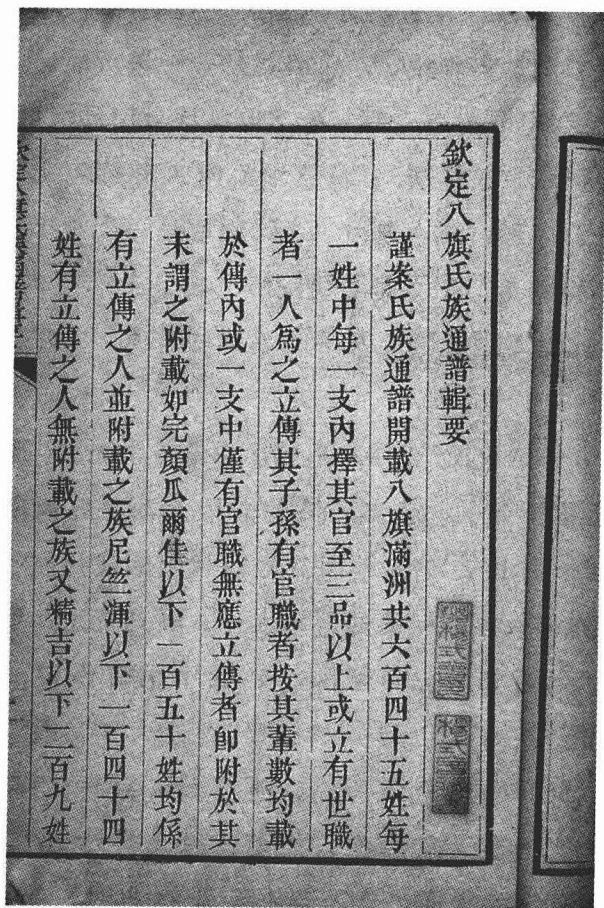 欽定八旗氏族通譜輯要
謹案氏族通譜開載八旗滿洲共六百四十五姓每
一姓中每一支內擇其官至三品以上或立有世職
者一人爲之立傳其子孫有官職者按其輩數均載
於傳內或一支中僅有官職無應立傳者卽附於其
末謂之附載如完顏瓜爾佳以下一百五十姓均係
有立傳之人並附載之族尼竺渾以下一百四十四
姓有立傳之人無附載之族又精吉以下二百九姓